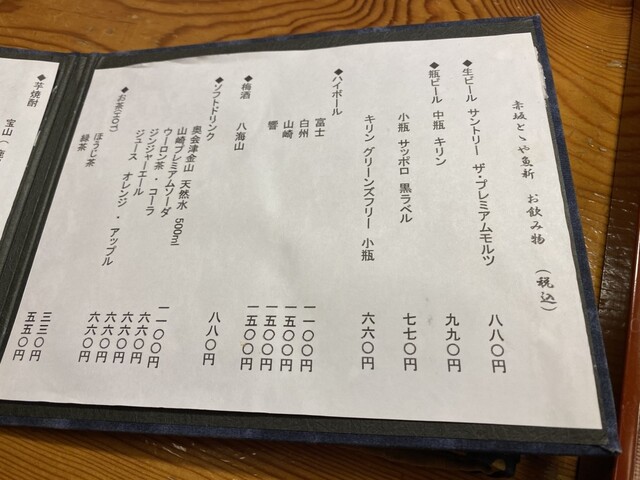 赤坂ととや魚新 お飲み物 (税込)
◆生ビール サントリー ザ・プレミアムモルツ 八八〇円
◆瓶ビール 中瓶 キリン 九九〇円
小瓶 サッポロ 黒ラベル 七七〇円
キリン グリーンズフリー 小瓶 六六〇円
◆ハイボール
富士 一一〇〇円
白州 一五〇〇円
山崎 一五〇〇円
響 一五〇〇円
◆梅酒
八海山 八八〇円
◆ソフトドリンク
奥会津金山 天然水 500ml 一一〇〇円
山崎プレミアムソーダ 六六〇円
ウーロン茶・コーラ 六六〇円
ジンジャーエール 六六〇円
ジュース オレンジ・アップル 六六〇円
◆お茶(HOT)
ほうじ茶 三三〇円
緑茶 五五〇円
◆芋焼酎
宝山(